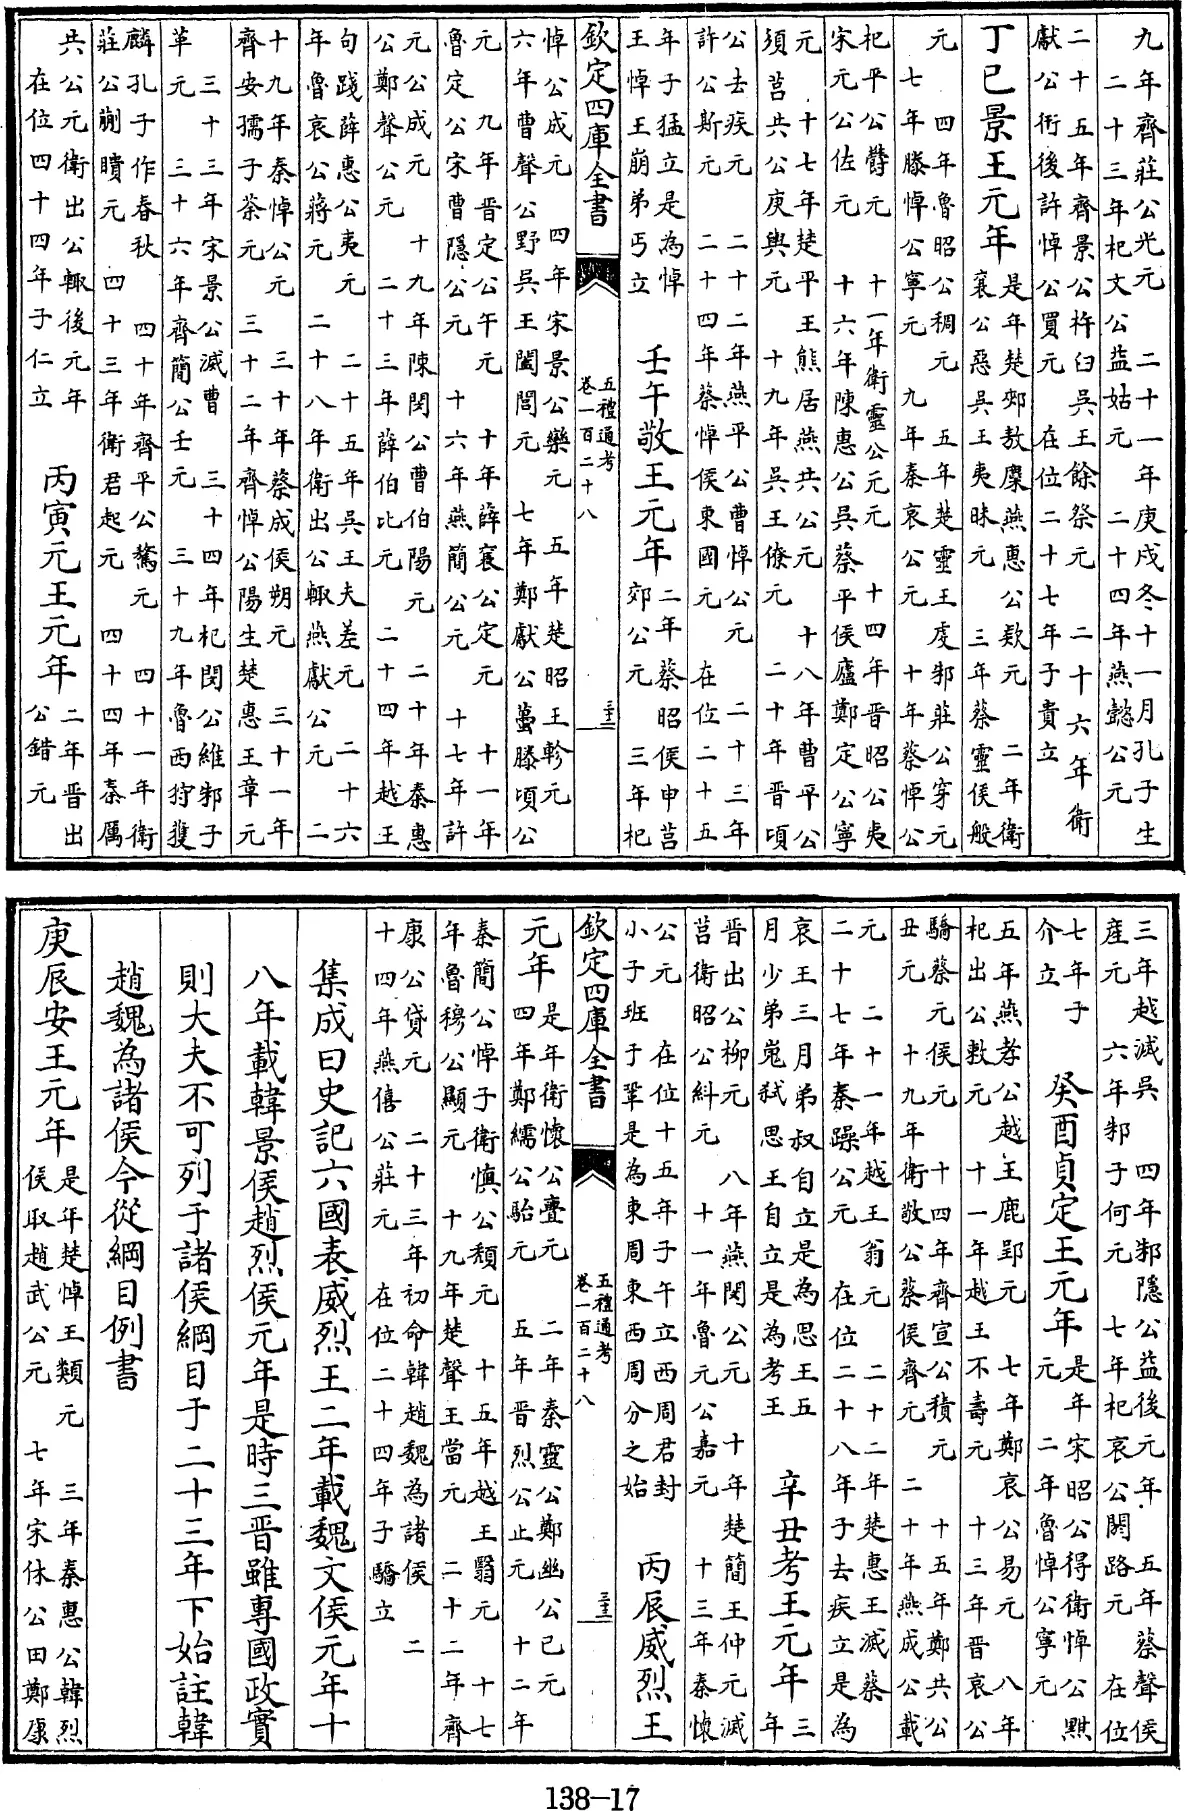 九年齊莊公光元　二十一年庚戌冬十一月孔子生
二十三年杞文公益姑元　二十四年燕懿公元
二十五年齊景公杵臼吳王餘祭元　二十六年衛
獻公衎後許悼公買元　在位二十七年子貴立
丁巳景王元年
是年楚郟敖麇燕惠公欵元　二年衛
襄公惡吳王夷昧元　三年蔡靈侯般
元　四年魯昭公稠元　五年楚靈王虔邾莊公穿元
七年滕悼公寧元　九年秦哀公元　十年蔡悼公
杞平公鬱元　十一年衛靈公元元　十四年晉昭公夷
宋元公佐元　十六年陳惠公吳蔡平侯廬鄭定公寧
元　十七年楚平王熊居燕共公元　十八年曹平公
須莒共公庚輿元　十九年吳王僚元　二十年晉頃
公去疾元　二十二年燕平公曹悼公元　二十三年
許公斯元　二十四年蔡悼侯東國元　在位二十五
年子猛立是為悼
王悼王崩弟丐立
壬午敬王元年
二年蔡昭侯申莒
郊公元　三年杞
欽定四庫全書
五禮通考
卷一百二十八
三十二
悼公成元　四年宋景公欒元　五年楚昭王軫元
六年曹聲公野吳王闔閭元　七年鄭獻公蠆滕頃公
元　九年晉定公午元　十年薛襄公定元　十一年
魯定公宋曹隱公元　十六年燕簡公元　十七年許
元公成元　十九年陳閔公曹伯陽元　二十年秦惠
公鄭聲公元　二十三年薛伯比元　二十四年越王
句踐薛惠公夷元　二十五年吳王夫差元　二十六
年魯哀公蔣元　二十八年衛出公輒燕獻公元　二
十九年秦悼公元　三十年蔡成侯朔元　三十一年
齊安孺子荼元　三十二年齊悼公陽生楚惠王章元
三十三年宋景公滅曹　三十四年杞閔公維邾子
革元　三十六年齊簡公壬元　三十九年魯西狩獲
麟孔子作春秋　四十年齊平公驁元　四十一年衛
莊公蒯聵元　四十三年衛君起元　四十四年秦厲
共公元衛出公輒後元年
在位四十四年子仁立
丙寅元王元年
二年晉出
公錯元
三年越滅吳　四年邾隱公益後元年　五年蔡聲侯
產元　六年邾子何元　七年杞哀公閼路元　在位
七年子
介立
癸酉貞定王元年
是年宋昭公得衛悼公黚
元　二年魯悼公寧元
五年燕孝公越王鹿郢元　七年鄭哀公易元　八年
杞出公敕元　十一年越王不壽元　十三年晉哀公
驕蔡元侯元　十四年齊宣公積元　十五年鄭共公
丑元　十九年衛敬公蔡侯齊元　二十年燕成公載
元　二十一年越王翁元　二十二年楚惠王滅蔡
二十七年秦躁公元　在位二十八年子去疾立是為
哀王三月弟叔自立是為思王五
月少弟嵬弒思王自立是為考王
辛丑考王元年
三
年
晉出公柳元　八年燕閔公元　十年楚簡王仲元滅
莒衛昭公糾元　十一年魯元公嘉元　十三年秦懷
公元　在位十五年子午立西周君封
小子班于鞏是為東周東西周分之始
丙辰威烈王
欽定四庫全書
五禮通考
卷一百二十八
三十三
元年
是年衛懷公亹元　二年秦靈公鄭幽公已元
四年鄭繻公駘元　五年晉烈公止元　十二年
秦簡公悼子衛慎公頹元　十五年越王翳元　十七
年魯穆公顯元　十九年楚聲王當元　二十二年齊
康公貸元　二十三年初命韓趙魏為諸侯　二
十四年燕僖公莊元　在位二十四年子驕立
集成曰史記六國表威烈王二年載魏文侯元年十
八年載韓景侯趙烈侯元年是時三晉雖專國政實
則大夫不可列于諸侯綱目于二十三年下始註韓
趙魏為諸侯今從綱目例書
庚辰安王元年
是年楚悼王類元　三年秦惠公韓烈
侯取趙武公元　七年宋休公田鄭康
138-17